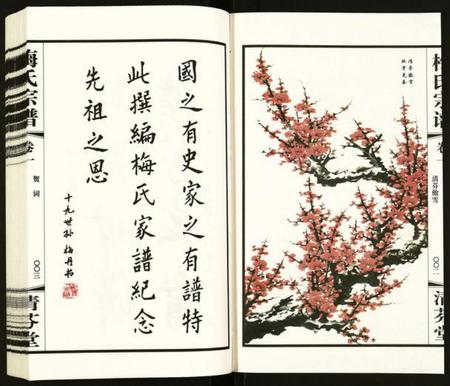 梅氏宗谱
卷一
清芬傲雪
〇〇二
清芬堂
清芬傲雪
國之有史家之有譜特
此撰編梅氏家譜紀念
先祖之恩
十九世孫 梅丹书
梅氏宗譜
卷一
贺词
〇〇三
清芬堂